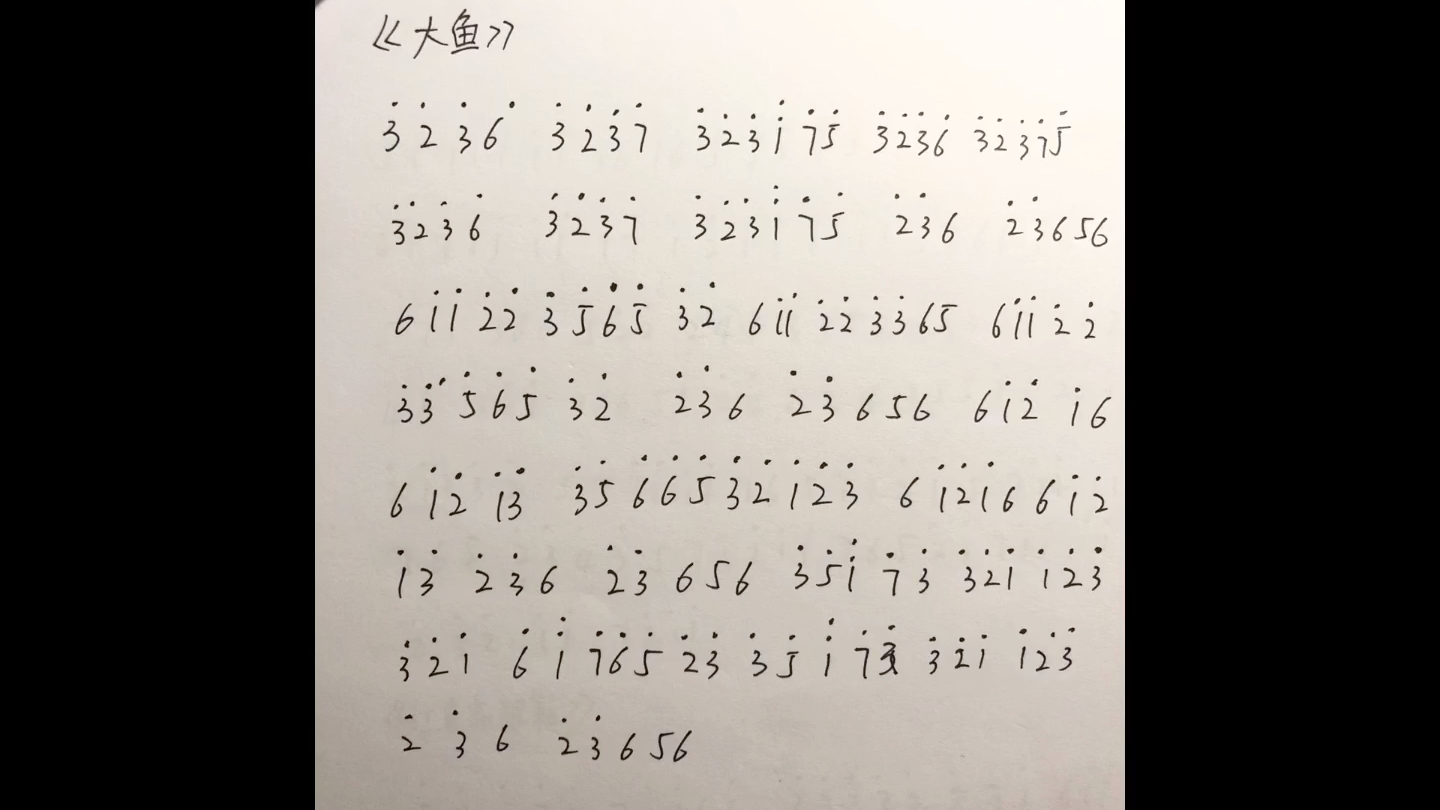 《大鱼》
3̇ 2̇ 3̇ 6̇ 3̇ 2̇ 3̇ 7̇ 3̇ 2̇ 3̇ 1̈ 7̇ 5̇ 3̇ 2̇ 3̇ 6̇ 3̇ 2̇ 3̇ 7̇ 5̇
3̇ 2̇ 3̇ 6̇ 3̇ 2̇ 3̇ 7̇ 3̇ 2̇ 3̇ 1̈ 7̇ 5̇ 2̇ 3̇ 6 2̇ 3̇ 6 5 6
6 1̇ 1̇ 2̇ 2̇ 3̇ 5̇ 6̇ 5̇ 3̇ 2̇ 6 1̇ 1̇ 2̇ 2̇ 3̇ 3̇ 6 5 6 1̇ 1̇ 2̇ 2̇
3̇ 3̇ 5̇ 6̇ 5̇ 3̇ 2̇ 2̇ 3̇ 6 2̇ 3̇ 6 5 6 6 1̇ 2̇ 1̇ 6
6 1̇ 2̇ 1̇ 3̇ 3̇ 5̇ 6̇ 6̇ 5̇ 3̇ 2̇ 1̇ 2̇ 3̇ 6 1̇ 2̇ 1̇ 6 6 1̇ 2̇
1̇ 3̇ 2̇ 3̇ 6 2̇ 3̇ 6 5 6 3̇ 5̇ 1̈ 7̇ 3̇ 3̇ 2̇ 1̇ 1̇ 2̇ 3̇
3̇ 2̇ 1̇ 6̇ 1̈ 7̇ 6̇ 5̇ 2̇ 3̇ 3̇ 5̇ 1̈ 7̇ 3̇ 3̇ 2̇ 1̇ 1̇ 2̇ 3̇
2̇ 3̇ 6 2̇ 3̇ 6 5 6